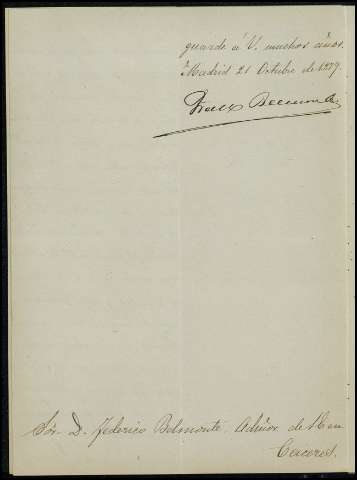 guarde á V. muchos años.
Madrid 21 Octubre de 1879.
Sór. D. Federico Belmonte. Admor. de
Caceres.